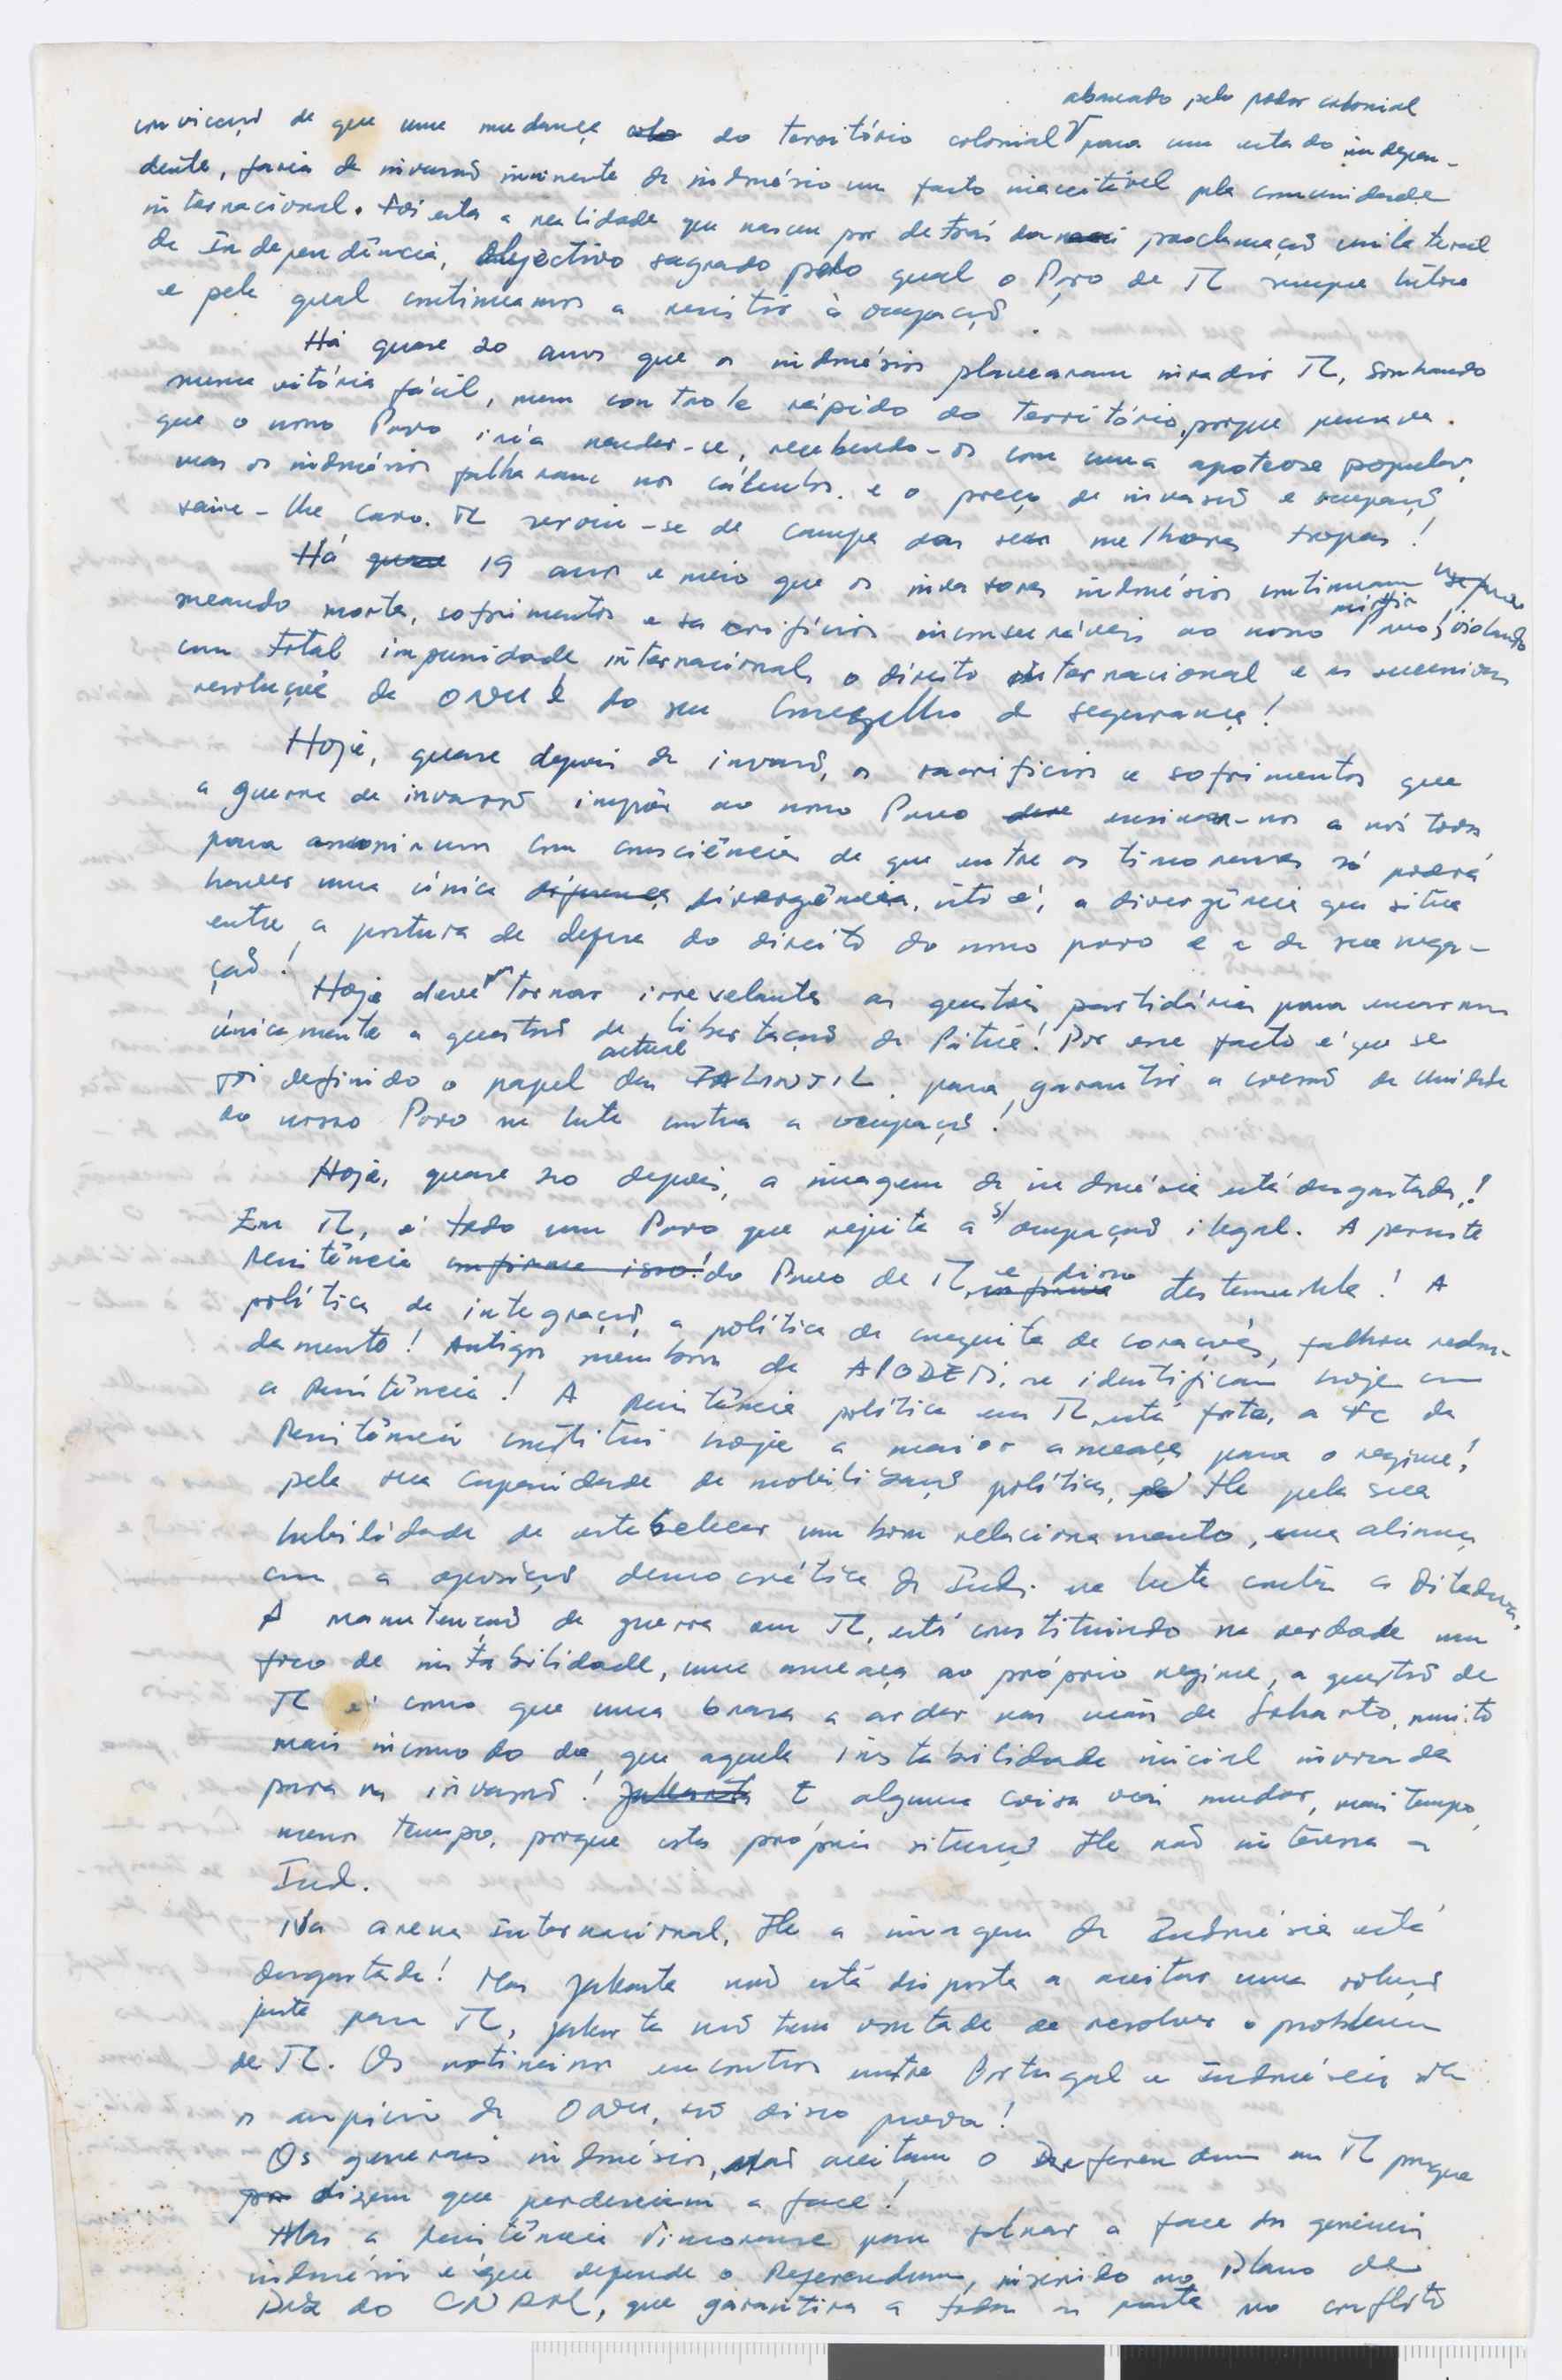 abandonado pelo poder colonial
convicção de que uma mudança do território colonial para um estado indepen-
dente, faria da invasão iminente da indonésia um facto inaceitável pla comunidade
internacional. Foi esta a realidade que nasceu por detrás da proclamação unilateral
da Independência, objectivo sagrado pelo qual o Povo de TL sempre lutou
e pela qual continuamos a resistir à ocupação!
Há quase 20 anos que os indonésios planearam invadir TL, sonhando
numa vitória fácil, num controle rápido do território, porque pensava
que o nosso Povo iria render-se, recebendo-os com uma apoteose popular,
mas os indonésios falharam nos cálculos. e o preço da invasão e ocupação
saiu-lhe caro. TL serviu-se de campa das suas melhores tropas!
Há quase 19 anos e meio que os invasores indonésios continuam
semeando morte, sofrimentos e sacrifícios incomensuráveis ao nosso Povo, violando
com total impunidade internacional, o direito internacional e as sucessivas
resoluções da ONU e do seu Conselho de segurança!
Hoje, quase depois da invasão, os sacrifícios e sofrimentos que
a guerra de invasão impôs ao nosso Povo deve ensinar-nos a nós todos
para assumirmos com consciência de que entre os timorenses só poderá
haver uma única diferença divergência, isto é, a divergência que situa
entre a postura de defesa do direito do nosso povo e a da sua nega-
ção!
Hoje devemos tornar irrevelantes as questões partidárias para encararmos
únicamente a questão da libertação da Pátria! Por esse facto é que se
actual
foi definido o papel das FALINTIL para garantir a coesão da Unidade
do nosso Povo na luta contra a ocupação!
Hoje, quase 20 depois, a imagem da indonésia está desgastada!
Em TL, é todo um Povo que rejeita a s/ ocupação ilegal. A
Resistência confirma isso! do Povo de TL, é disso testemunha! A
política de integração, a política da conquista de corações, falhou redon-
damente! Antigos membros da APODETI, se identificam hoje com
a Resistência! A Resistência política em TL, está forte, a FC da
Resistência constitui hoje a maior ameaça para o regime!
pela sua capacidade de mobilização política, pela sua
habilidade de estabelecer um bom relacionamento, uma aliança
com a oposição democrática da Ind. na luta contra a Ditadura.
A manutenção da guerra em TL, está constituindo na verdade um
foco de instabilidade, uma ameaça ao próprio regime, a questão de
TL é como que uma brasa a arder nas mãos de Suharto, muito
mais incomodo do que aquela instabilidade inicial invocada
para a invasão! Jakarta E alguma coisa vai mudar, mais tempo,
menos tempo, porque esta própria situação não interessa a
Ind.
Na arena Internacional, a imagem da Indonésia está
desgastada! Mas Jakarta não está disposta a aceitar uma solução
justa para TL, Jakarta não tem vontade de resolver o problema
de TL. Os encontros entre Portugal e Indonésia
os auspícios da ONU, são disso prova!
Os generais indonésios, não aceitam o Referendum em TL porque
dizem que perderiam a face!
Mas a Resistência Timorense para salvar a face dos generais
indonésios é que defende o Referendum, inserido no Plano de
Paz do CNRM, que garantiria a todas as partes no conflito